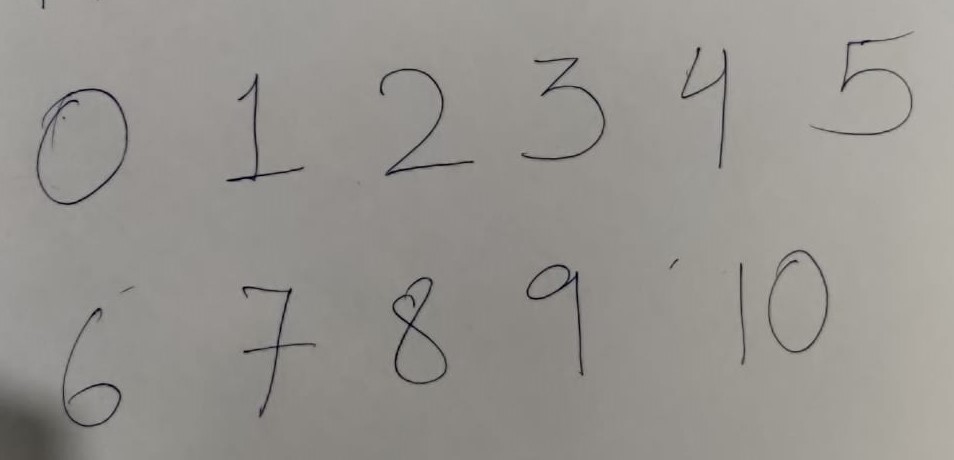 0 1 2 3 4 5
6 7 8 9 10